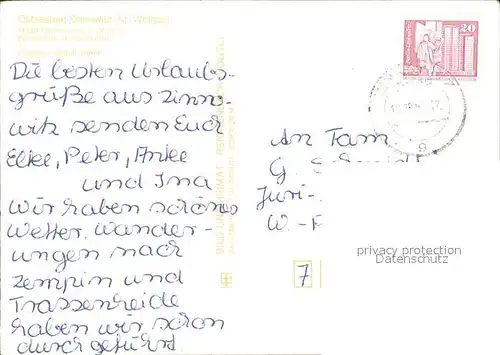 Ostseebad Zinnowitz, Kr. Wolgast
Die besten Urlaubs-
grüße aus Zinno-
witz senden Euch
Elke, Peter, Anke
und Ina
Wir haben schönes
Wetter. Wander-
ungen nach
Zempin und
Trassenheide
haben wir schon
durchgeführt
20
An Fam
G.
Juri-
W.-
privacy protection
Datenschutz
7
BILD UND HEIMAT